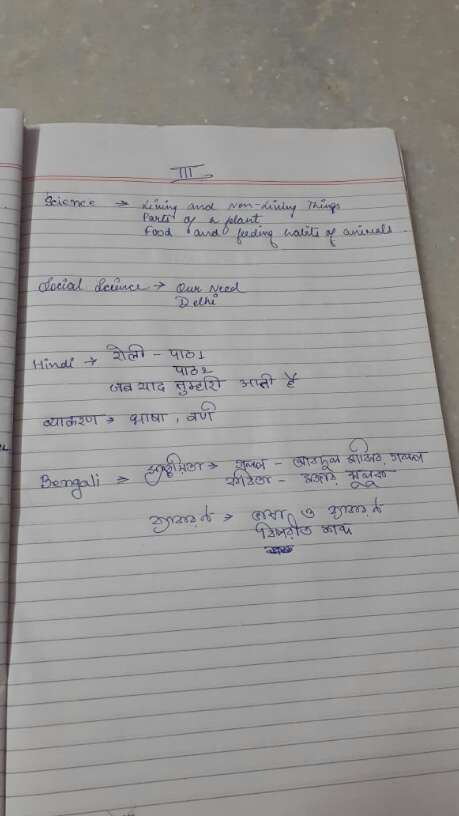 III
Science → Living and Non-living Things
Parts of a plant
Food and feeding habits of animals.
Social Science → Our Need
Delhi
Hindi → रोली - पाठ 1
पाठ 2
जब याद तुम्हारी आती है
व्याकरण → भाषा, वर्ण
Bengali → গল্প -
কবিতা - মজার মুল্লুক
ব্যাকরণ → ভাষা ও ব্যাকরণ
বিপরীত শব্দ